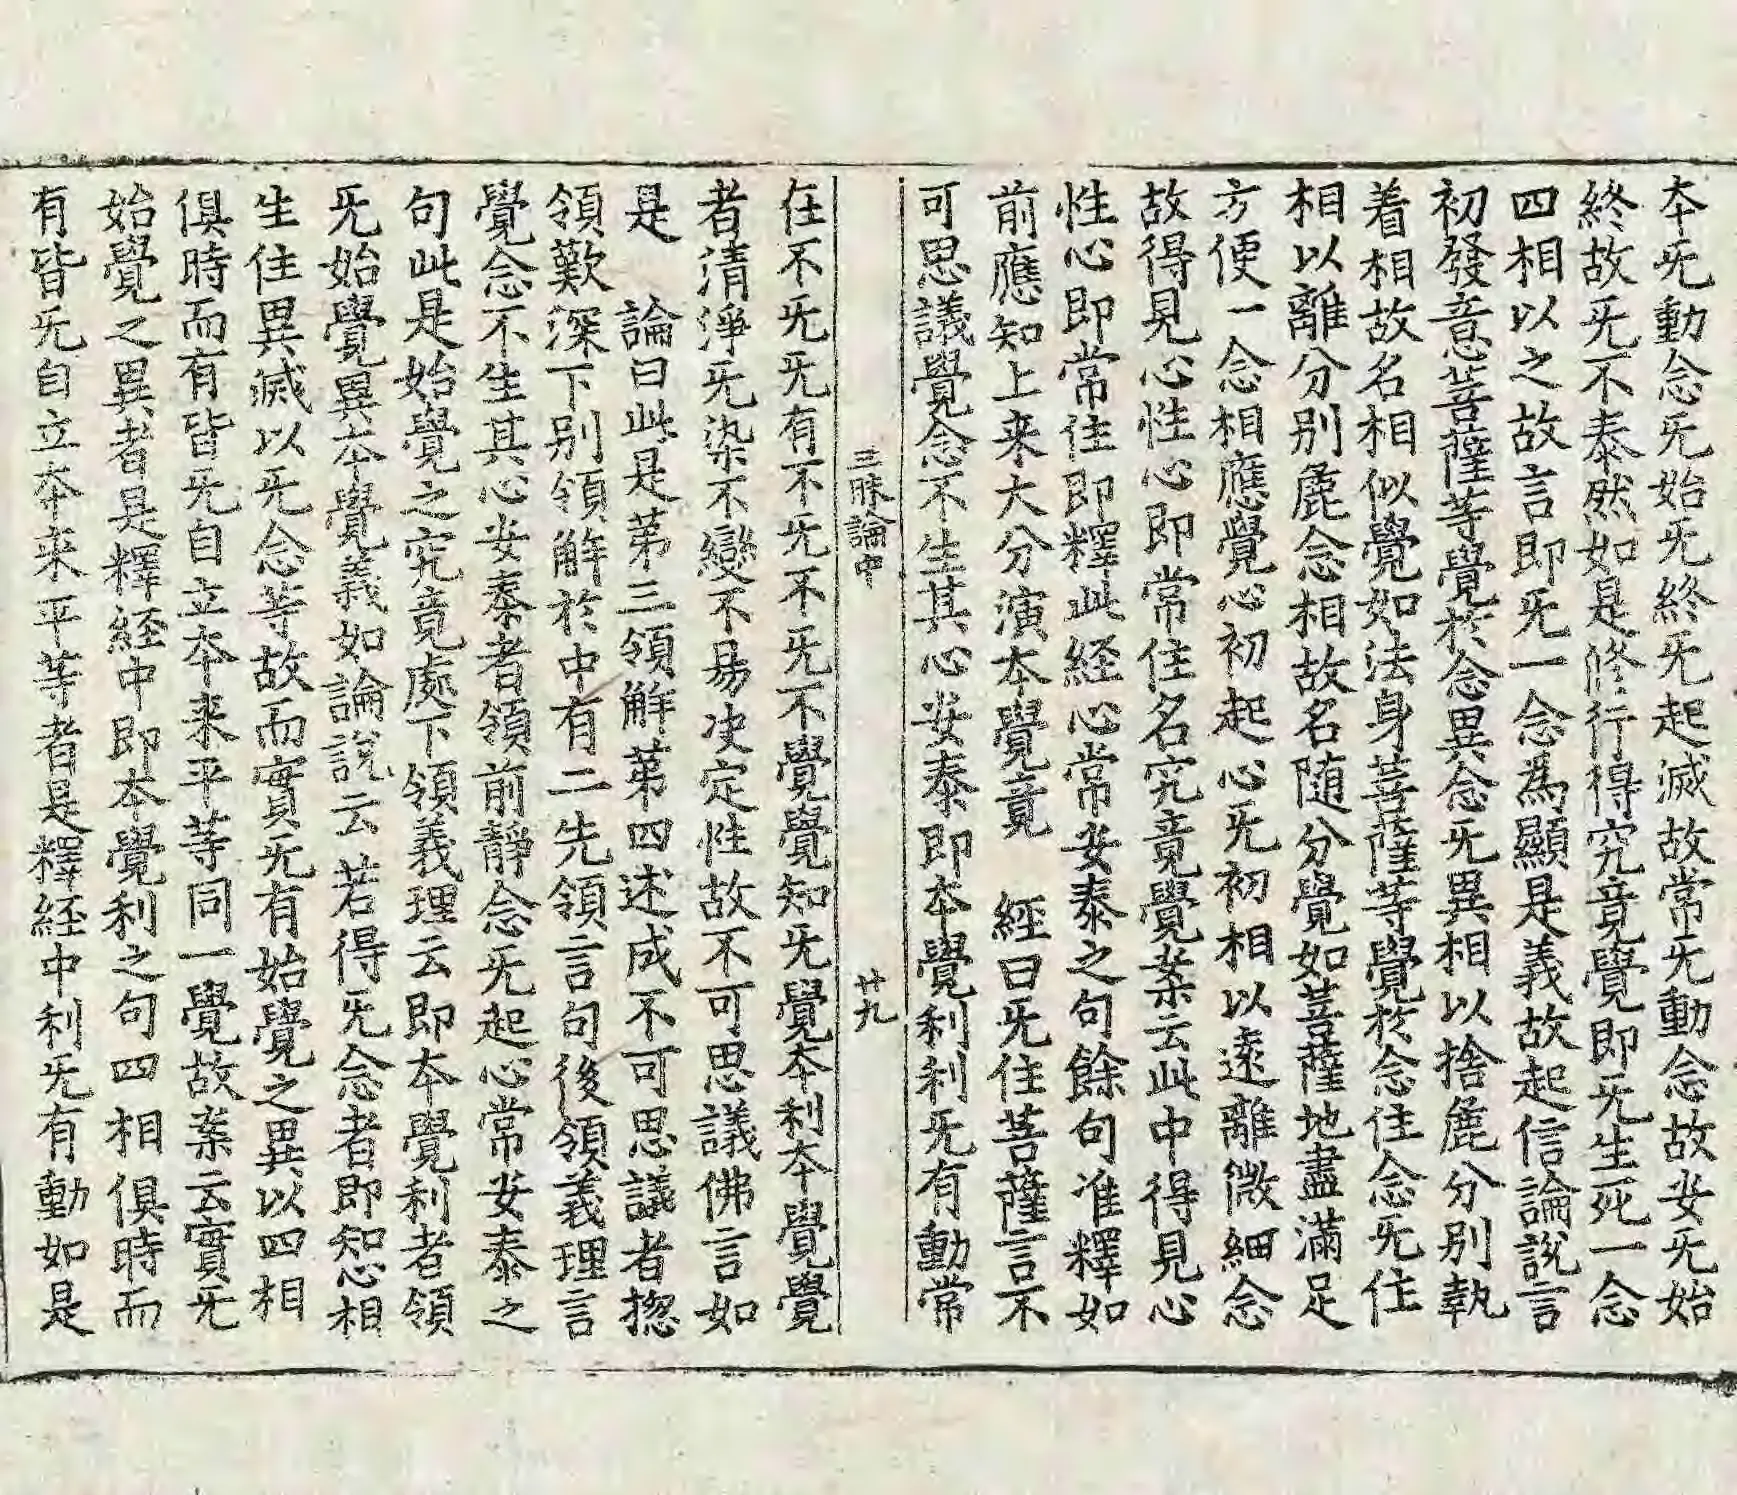 本无動念无始无終无起滅故常无動念故安无始
終故无不泰然如是修行得究竟覺即无生死一念
四相以之故言即无一念為顯是義故起信論說言
初發意菩薩等覺於念異念无異相以捨麁分別執
着相故名相似覺如法身菩薩等覺於念住念无住
相以離分別麁念相故名随分覺如菩薩地盡滿足
方便一念相應覺心初起心无初相以遠離微細念
故得見心性心即常住名究竟覺案云此中得見心
性心即常住即釋此経心常安泰之句餘句准釋如
前應知上来大分演本覺竟　經曰无住菩薩言不
可思議覺念不生其心安泰即本覺利利无有動常
三昧論中　廿九
在不无无有不无不无不覺覺知无覺本利本覺覺
者清淨无染不變不易决定性故不可思議佛言如
是　論曰此是第三領解第四述成不可思議者揔
領歎深下别領解於中有二先領言句後領義理言
覺念不生其心安泰者領前靜念无起心常安泰之
句此是始覺之究竟處下領義理云即本覺利者領
无始覺異本覺義如論說云若得无念者即知心相
生住異滅以无念等故而實无有始覺之異以四相
俱時而有皆无自立本来平等同一覺故案云實无
始覺之異者是釋経中即本覺利之句四相俱時而
有皆无自立本来平等者是釋経中利无有動如是